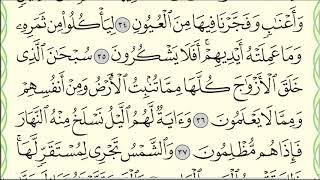 وَأَعْنَٰبٍ وَفَجَّرْنَا فِيهَا مِنَ ٱلْعُيُونِ ٣٤ لِيَأْكُلُوا۟ مِن ثَمَرِهِۦ
وَمَا عَمِلَتْهُ أَيْدِيهِمْ ۖ أَفَلَا يَشْكُرُونَ ٣٥ سُبْحَٰنَ ٱلَّذِى
خَلَقَ ٱلْأَزْوَٰجَ كُلَّهَا مِمَّا تُنۢبِتُ ٱلْأَرْضُ وَمِنْ أَنفُسِهِمْ
وَمِمَّا لَا يَعْلَمُونَ ٣٦ وَءَايَةٌ لَّهُمُ ٱلَّيْلُ نَسْلَخُ مِنْهُ ٱلنَّهَارَ
فَإِذَا هُم مُّظْلِمُونَ ٣٧ وَٱلشَّمْسُ تَجْرِى لِمُسْتَقَرٍّ لَّهَا ۚ